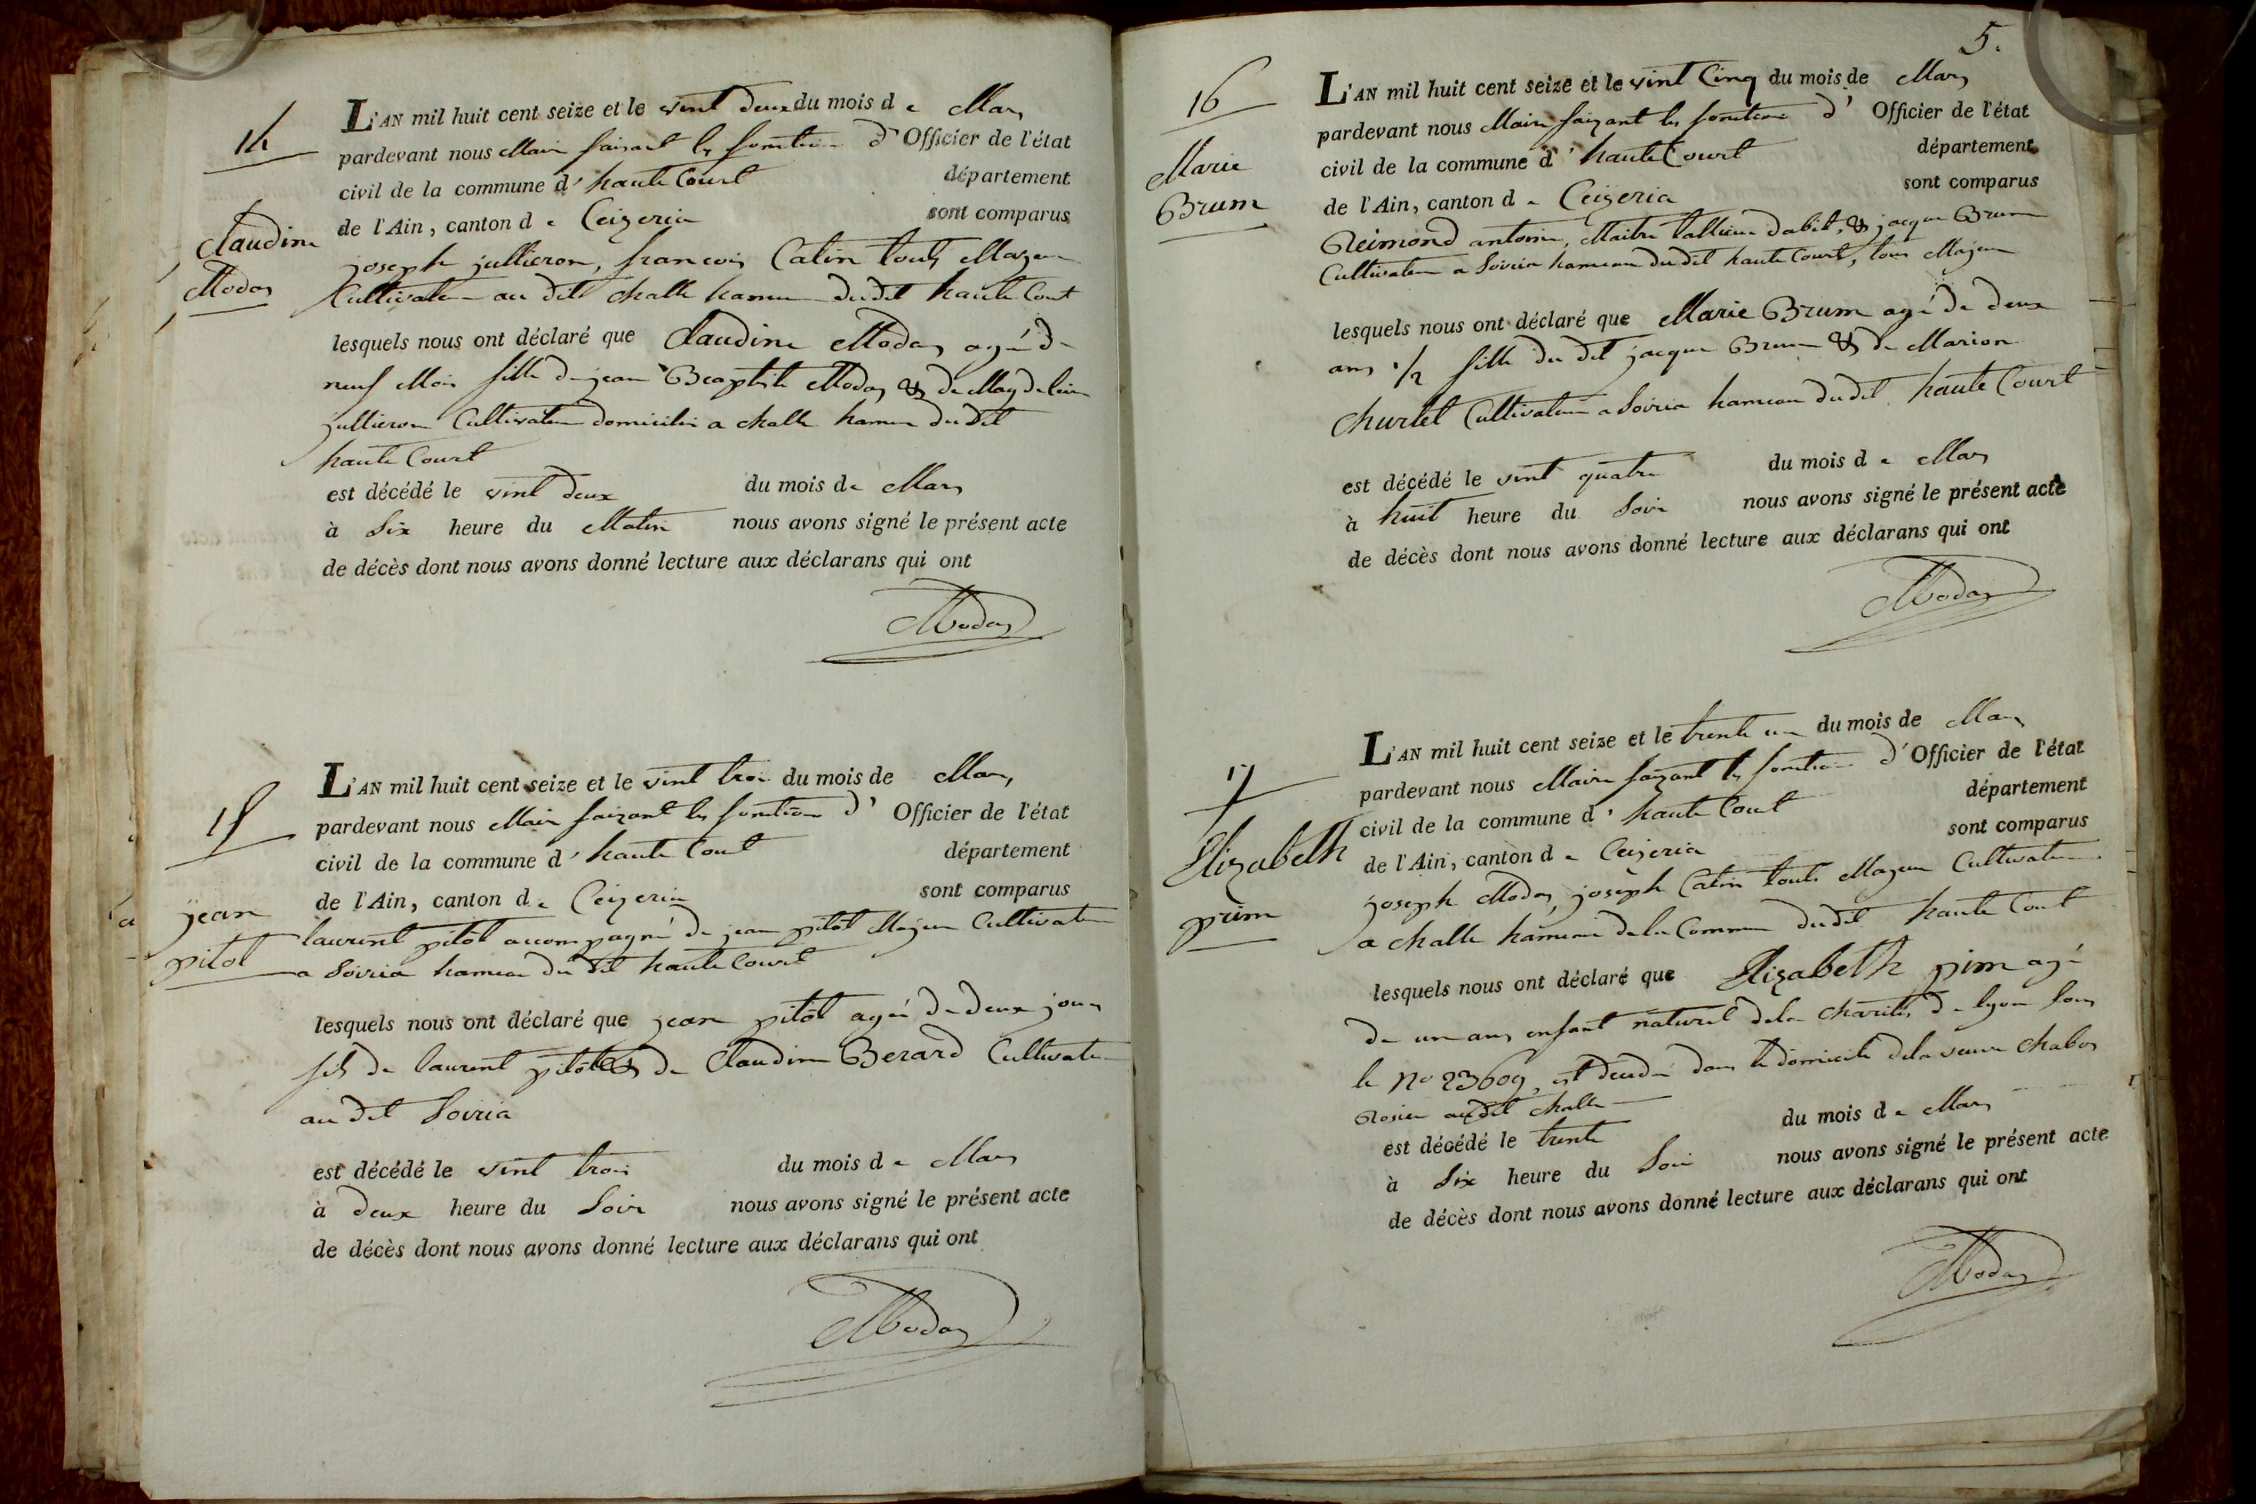 14
Claudine
Modas
L'AN mil huit cent seize et le vint deux du mois de Mars
pardevant nous Maire faisant les fonction d'Officier de l'état
civil de la commune d'haute Court département
de l'Ain, canton de Ceizeria sont comparus
joseph jullieron, francois Catin touts Mazeur
Cultivateur au dit challe hameau dudit haute Court
lesquels nous ont déclaré que Claudine Modas agé de
neuf Mois fille de jean Beaptiste Modas & de Magdeleine
jullieron Cultivateur domicilié a challe hameau du dit
haute Court
est décédé le vint deux du mois de Mars
à Six heure du Matin nous avons signé le présent acte
de décès dont nous avons donné lecture aux déclarans qui ont
Modas
15
jean
pitot
L'AN mil huit cent seize et le vint trois du mois de Mars
pardevant nous Maire faizant les fonction d'Officier de l'état
civil de la commune d'haute Court département
de l'Ain, canton de Ceizeria sont comparus
laurent pitot accompagné de jean pitot Majeur Cultivateur
a Soiria hameau du dit haute Court
lesquels nous ont déclaré que jean pitot agé de deux jours
fils de laurent pitot & de Claudine Berard Cultivateur
au dit Soiria
est décédé le vint trois du mois de Mars
à deux heure du Soir nous avons signé le présent acte
de décès dont nous avons donné lecture aux déclarans qui ont
Modas
5.
16
Marie
Brum
L'AN mil huit cent seize et le vint Cinq du mois de Mars
pardevant nous Maire faizant les fonctions d'Officier de l'état
civil de la commune d'haute Court département
de l'Ain, canton de Ceizeria sont comparus
Reimond antoine, Maitre tallieur dabit, & jacque Brum
Cultivateur a Soiria hameau du dit haute Court, tous Majeur
lesquels nous ont déclaré que Marie Brum agé de deux
ans 1/2 fille du dit jacque Brum & de Marion
Churlet Cultivateur a Soiria hameau du dit haute Court
est décédé le vint quatre du mois de Mars
à huit heure du Soir nous avons signé le présent acte
de décès dont nous avons donné lecture aux déclarans qui ont
Modas
17
Elizabeth
prim
L'AN mil huit cent seize et le trente un du mois de Mars
pardevant nous Maire faizant les fonction d'Officier de l'état
civil de la commune d'haute Court département
de l'Ain, canton de Ceizeria sont comparus
joseph Modas, joseph Catin touts Mazeur Cultivateur
a challe hameau de la Commune du dit haute Court
lesquels nous ont déclaré que Elizabeth pim agé
de un ans enfant naturel de la charité de lyon sous
le No 23609, est decedé dans le domicile de la veuve Chabos
Rosier au dit challe
est décédé le trente du mois de Mars
à Six heure du Soir nous avons signé le présent acte
de décès dont nous avons donné lecture aux déclarans qui ont
Modas